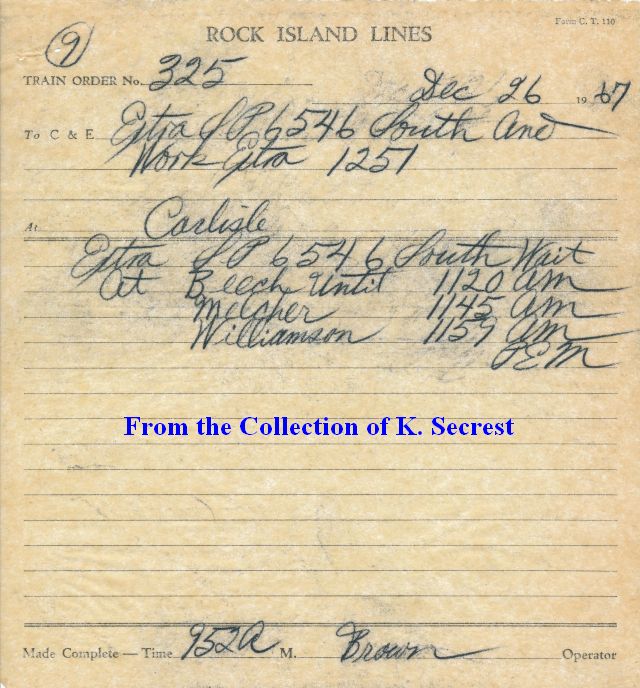 9
Form C. T. 110
ROCK ISLAND LINES
TRAIN ORDER No. 325
Dec 26 1967
To C & E Extra SP 6546 South and
Work Extra 1251
At Carlisle
Extra SP 6546 South Wait
At Beech Until 1120 am
Melcher 1145 am
Williamson 1159 am
From the Collection of K. Secrest
Made Complete — Time 952A M. Brown Operator